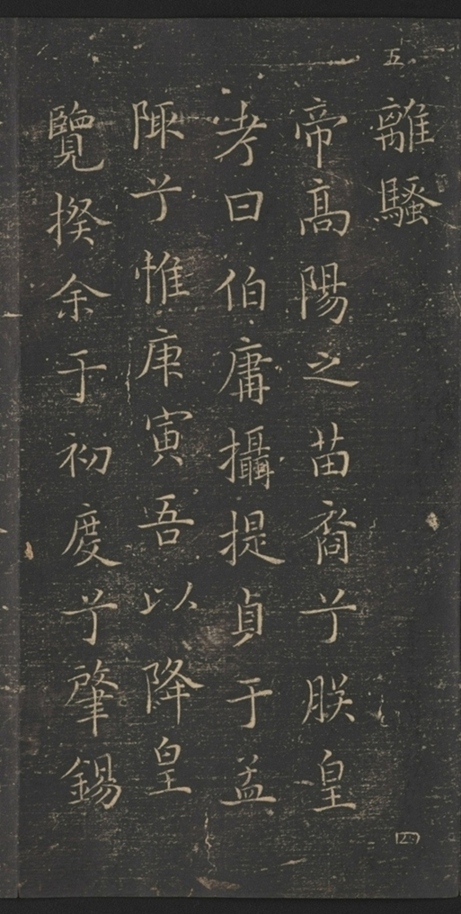 五
離騷
帝高陽之苗裔兮朕皇
考曰伯庸攝提貞于孟
陬兮惟庚寅吾以降皇
覽揆余于初度兮肇錫